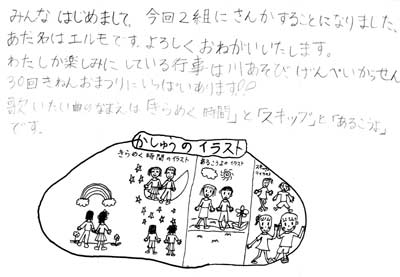 みんな はじめまして、今回2組にさんかすることになりました、
あだ名はエルモです。よろしくおねがいいたします。
わたしが楽しみにしている行事は川あそび、げんぺいがっせん
30回きねんおまつりにいっぱいあります♡♡
歌いたい曲のなまえは「きらめく時間」と「スキップ」と「あるこうよ」
です。
かしゅうのイラスト
きらめく時間のイラスト
あるこうよのイラスト